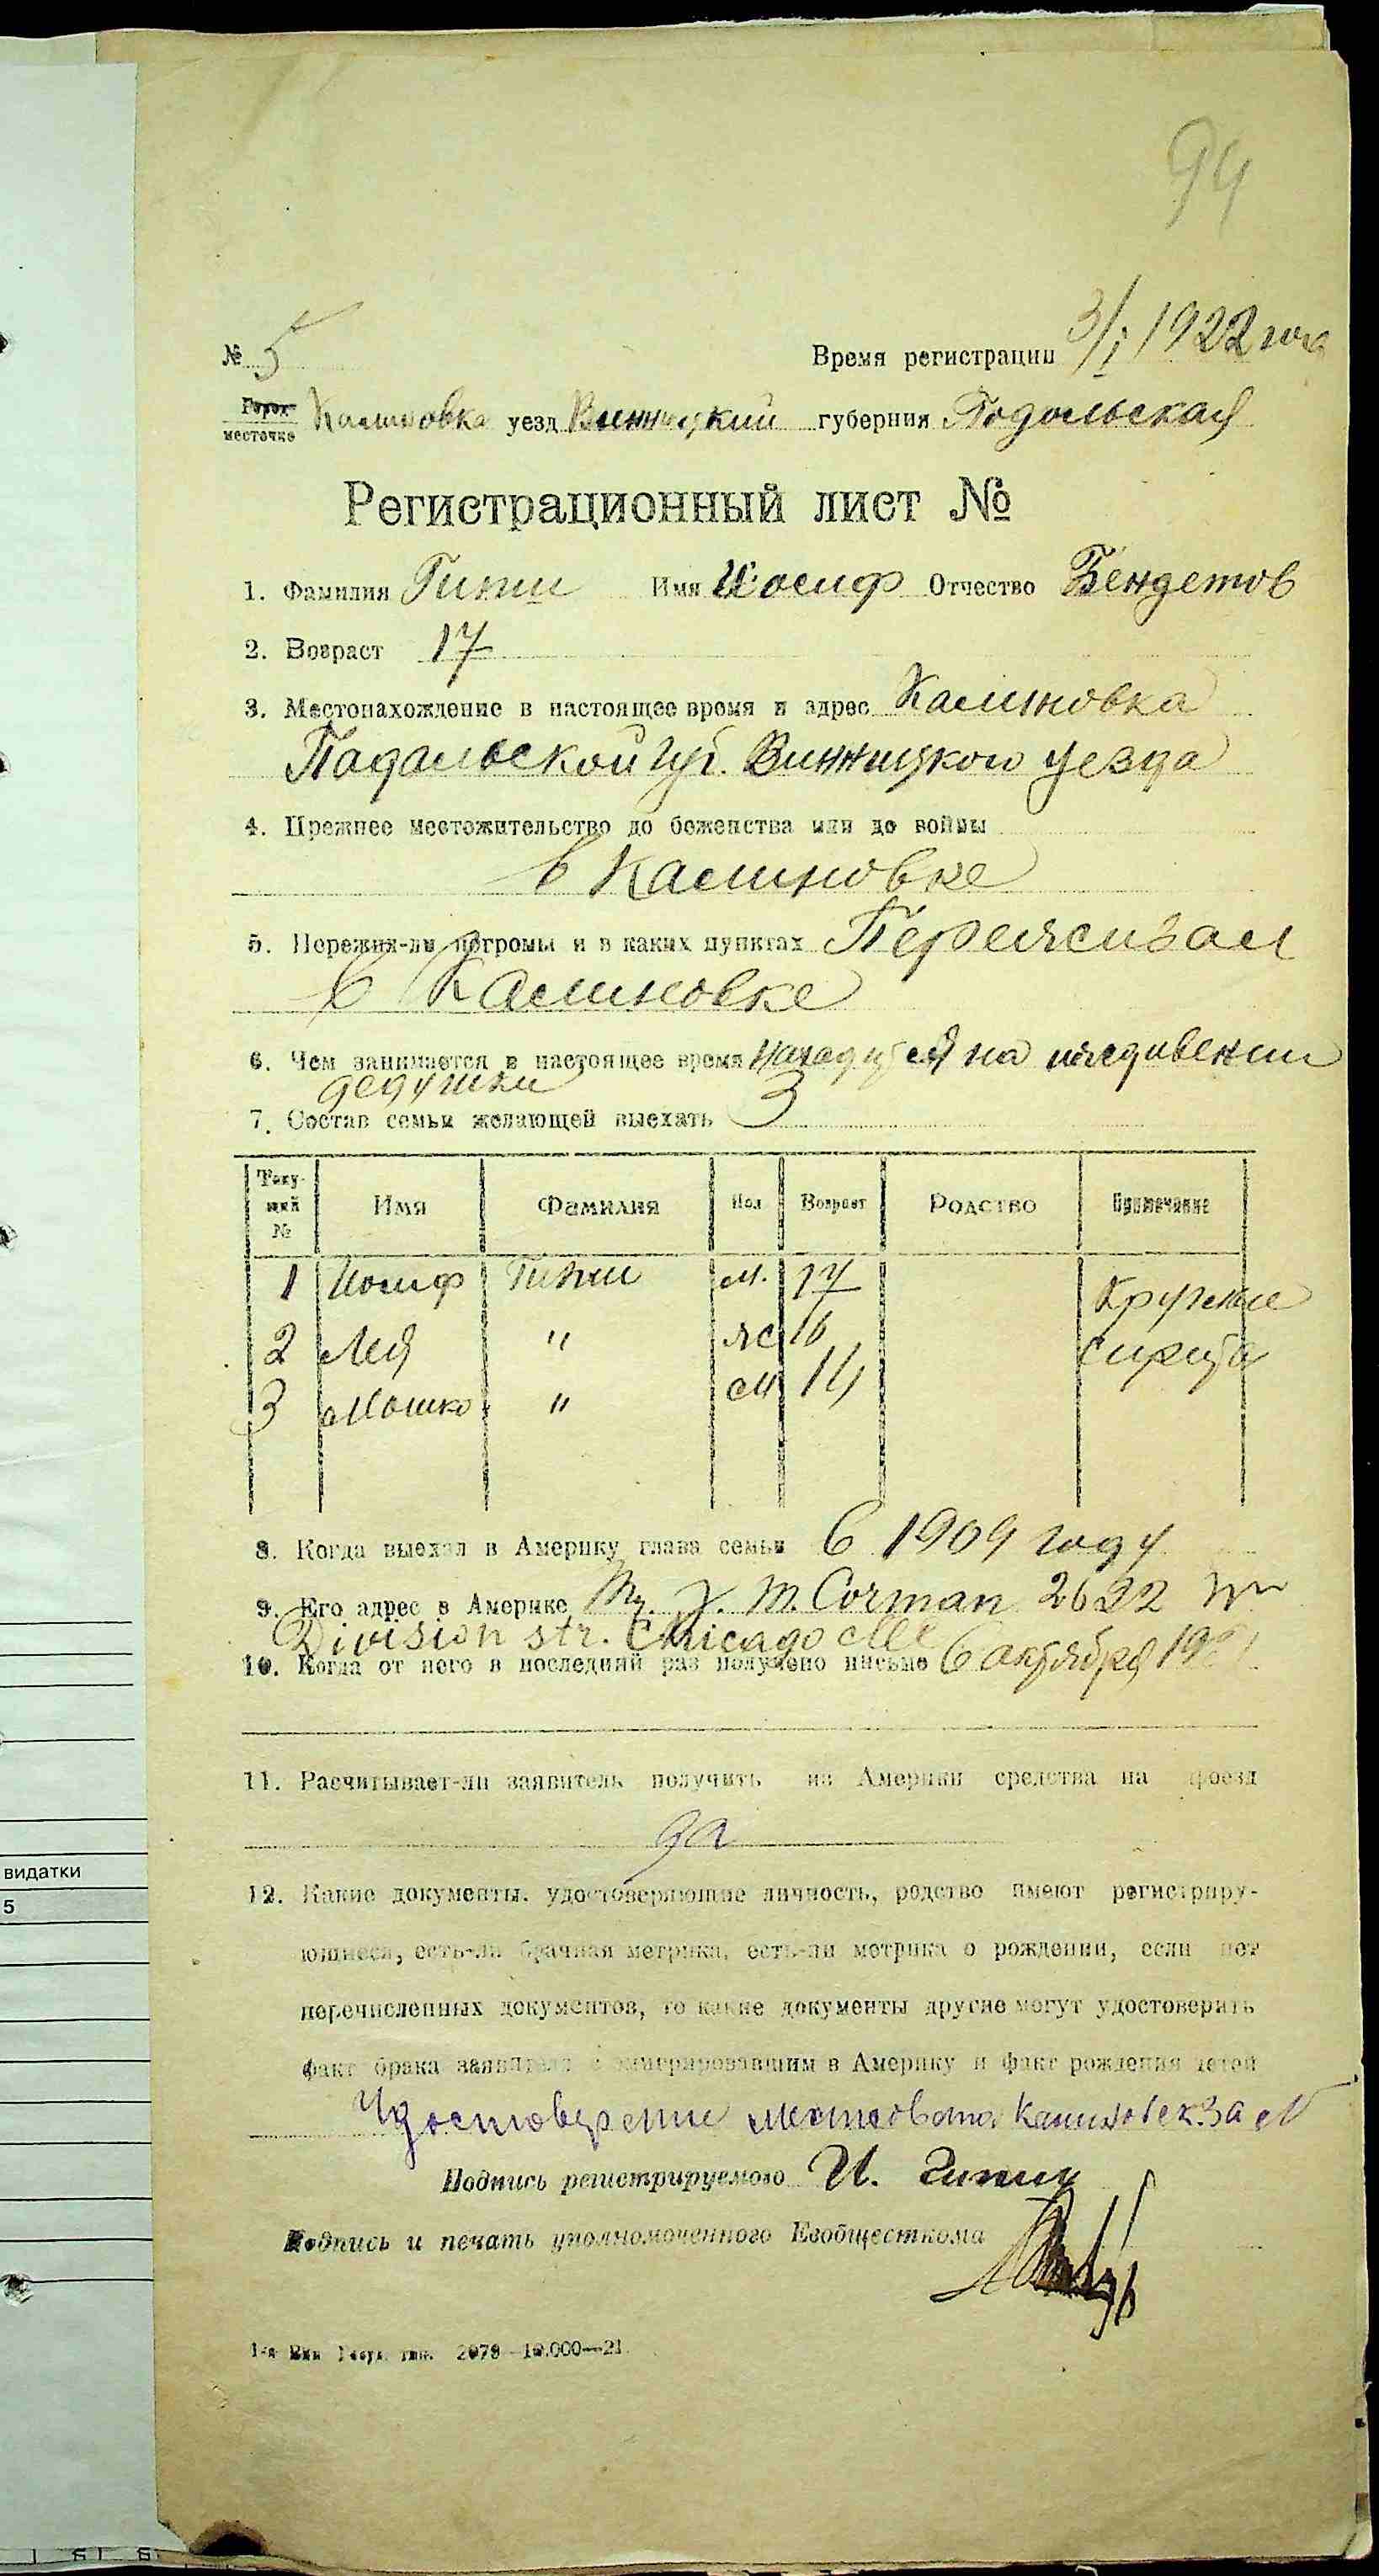 94
№ 5 Время регистрации 3/I 1922 года
Город
местечко Калиновка уезд Винницкий губерния Подольская
Регистрационный лист №
1. Фамилия Гипш Имя Иосиф Отчество Бендетов
2. Возраст 17
3. Местонахождение в настоящее время и адрес Калиновка
Падальской губ. Винницкого уезда
4. Прежнее местожительство до беженства или до войны
в Калиновке
5. Пережил-ли погромы и в каких пунктах Переживал
в Калиновке
6. Чем занимается в настоящее время находится на иждивении
дедушки
7. Состав семьи желающей выехать 3
Теку-щий № Имя Фамилия Пол Возраст Родство Примечание
1 Иосиф Гипш м. 17 Круглые
2 Лея " ж 16 сирота
3 Мошко " м 14
8. Когда выехал в Америку глава семьи в 1909 году
9. Его адрес в Америке Mr. J. M. Corman 2622 W
Division str. Chicago Ill
10. Когда от него в последний раз получено письмо в октября
11. Расчитывает-ли заявитель получить из Америки средства на проезд
да
12. Какие документы, удостоверяющие личность, родство имеют регистриру-
ющиеся, есть-ли брачная метрика, есть-ли метрика о рождении, если нет
перечисленных документов, то какие документы другие могут удостоверить
факт брака заявителя с эмигрировавшим в Америку и факт рождения детей
Удостоверение за №
Подпись регистрируемого И. Гипш
Подпись и печать уполномоченного Евобщесткома
2078—10.000—21.
видатки
5